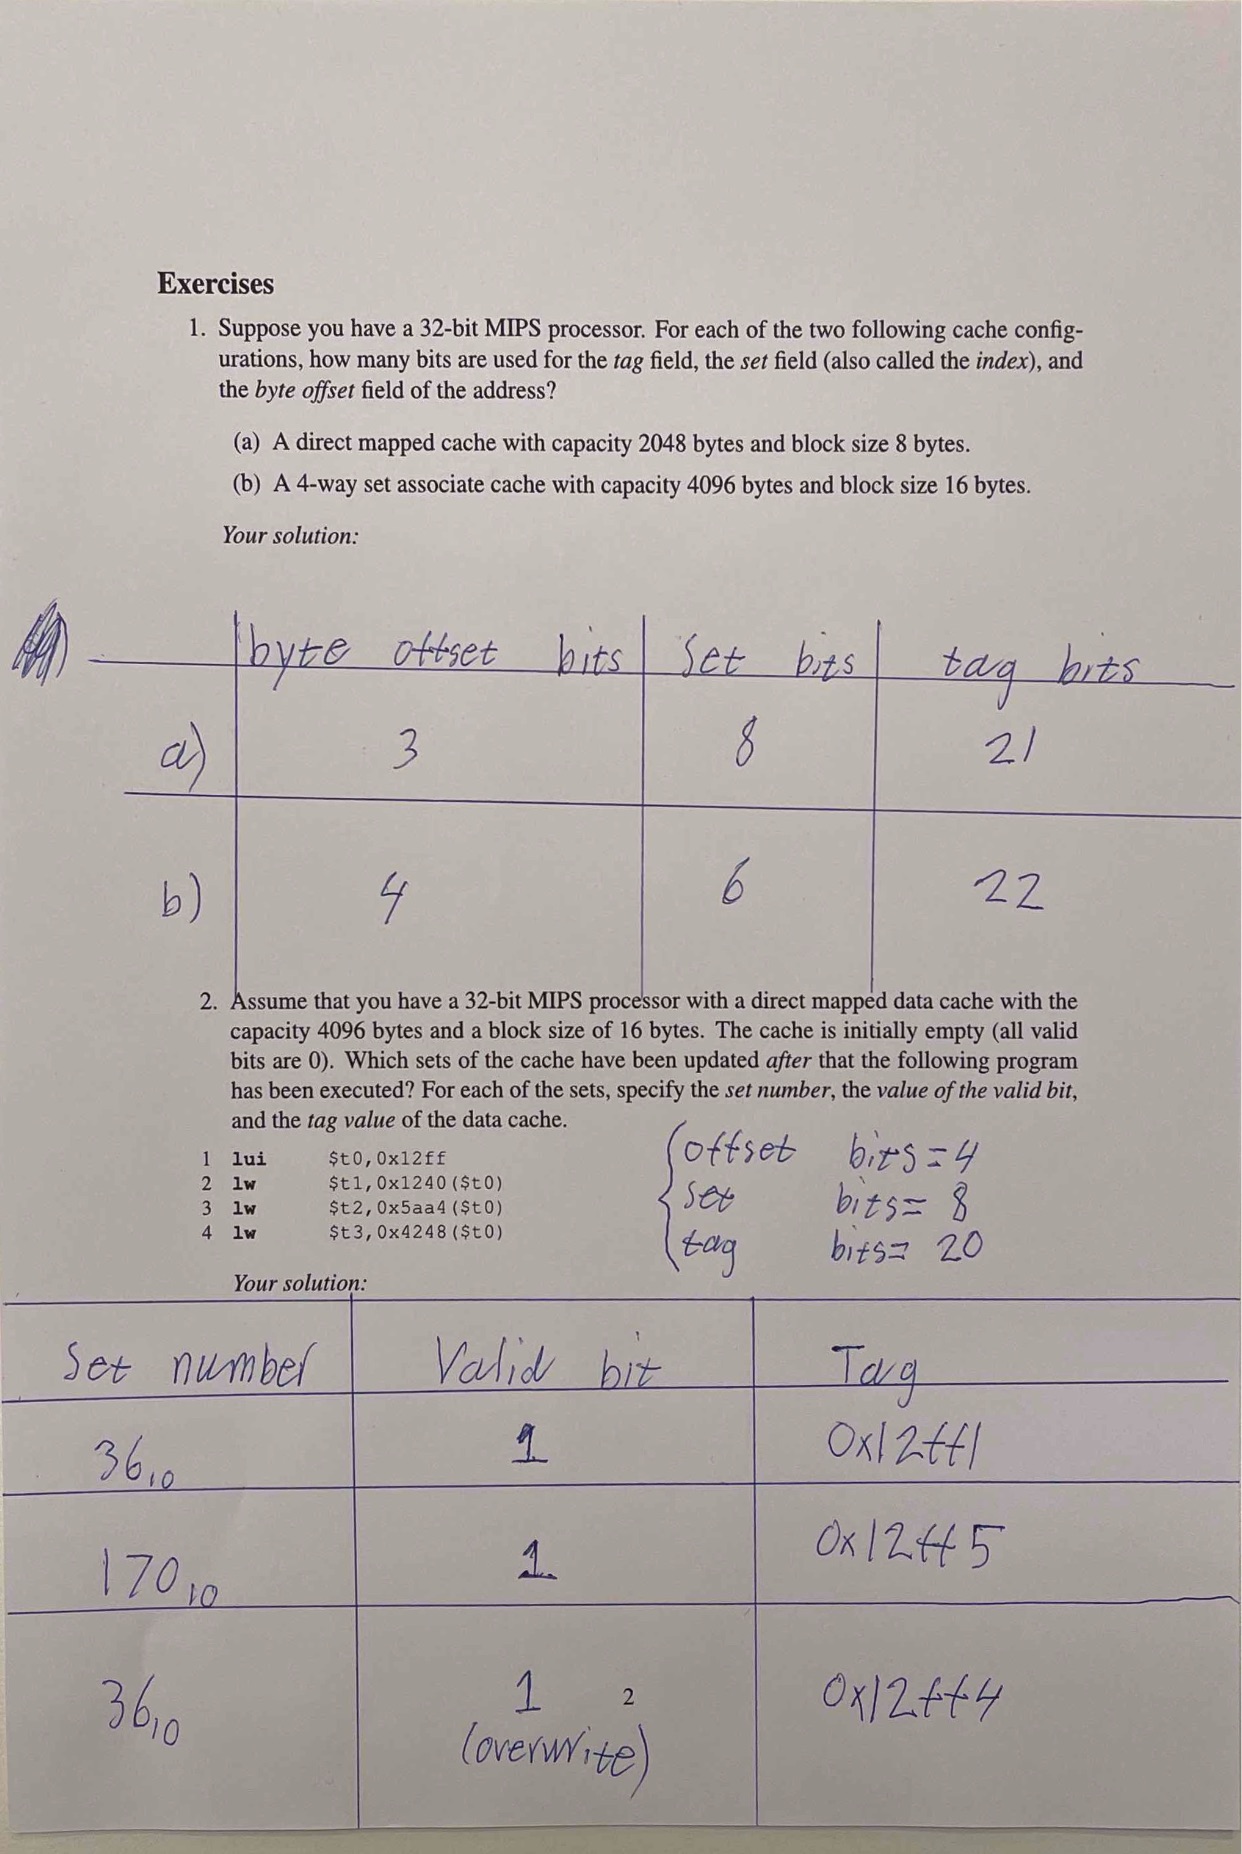 Exercises
1. Suppose you have a 32-bit MIPS processor. For each of the two following cache config-
urations, how many bits are used for the tag field, the set field (also called the index), and
the byte offset field of the address?
(a) A direct mapped cache with capacity 2048 bytes and block size 8 bytes.
(b) A 4-way set associate cache with capacity 4096 bytes and block size 16 bytes.
Your solution:
byte offset bits set bits tag bits
a) 3 8 21
b) 4 6 22
2. Assume that you have a 32-bit MIPS processor with a direct mapped data cache with the
capacity 4096 bytes and a block size of 16 bytes. The cache is initially empty (all valid
bits are 0). Which sets of the cache have been updated after that the following program
has been executed? For each of the sets, specify the set number, the value of the valid bit,
and the tag value of the data cache.
1 lui $t0,0x12ff
2 lw $t1,0x1240($t0)
3 lw $t2,0x5aa4($t0)
4 lw $t3,0x4248($t0)
offset bits=4
set bits= 8
tag bits= 20
Your solution:
Set number Valid bit Tag
36₁₀ 1 0x12ff1
170₁₀ 1 0x12ff5
36₁₀ 1 0x12ff4
(overwrite)
2